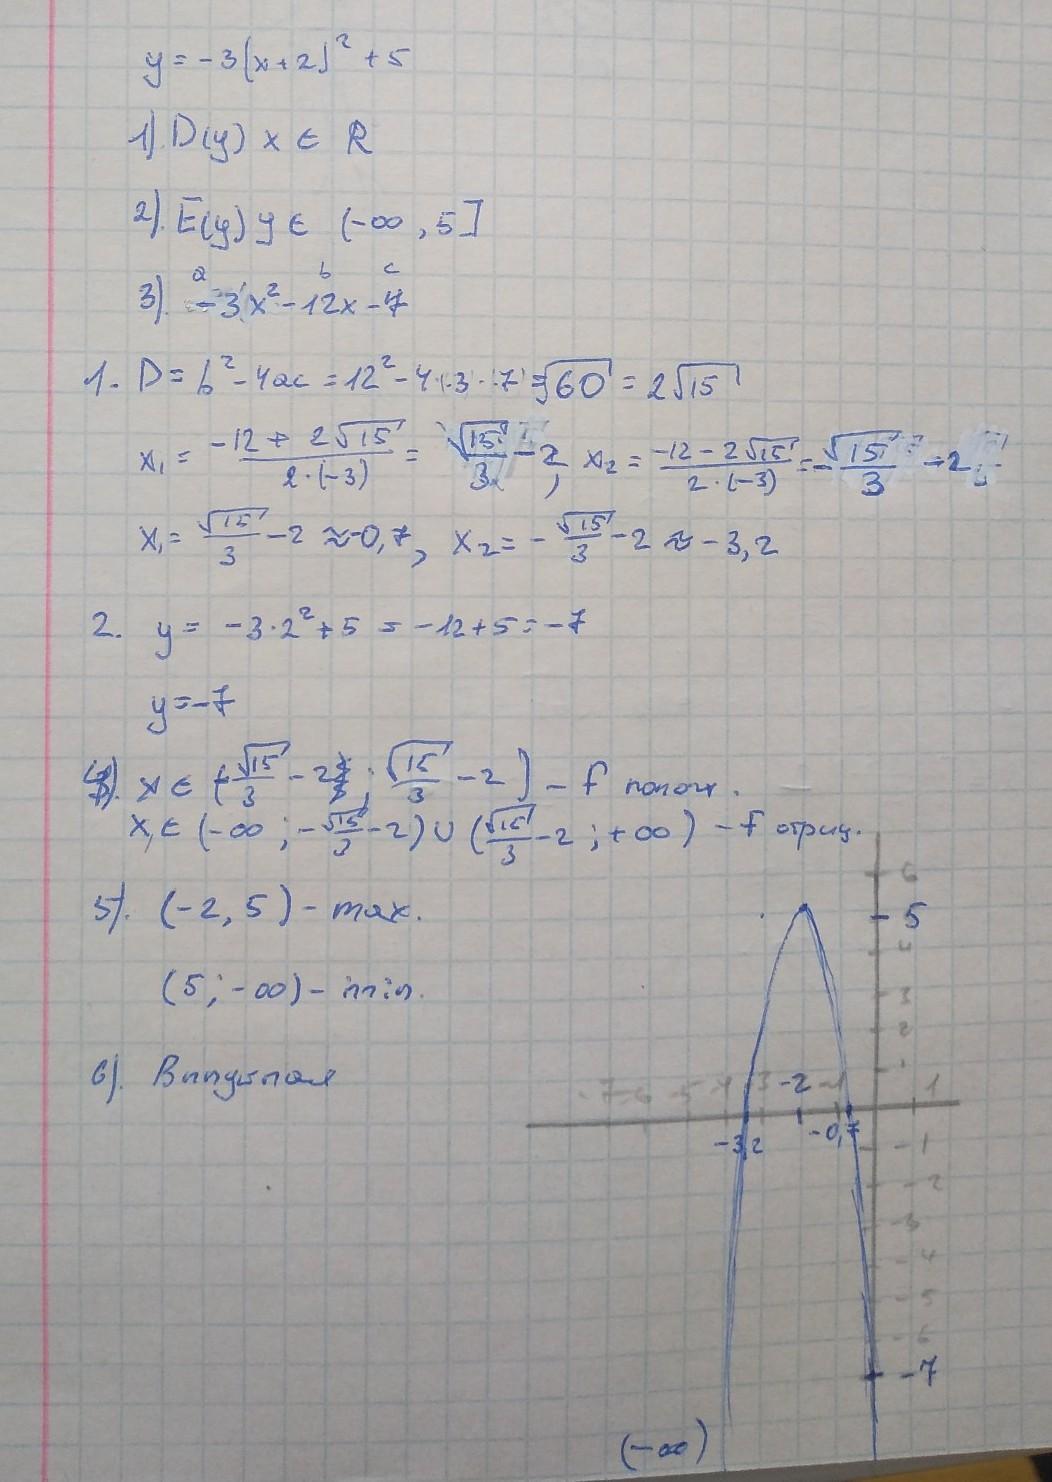 y = -3(x+2)² + 5
1). D(y) x ∈ R
2). E(y) y ∈ (-∞, 5]
a b c
3). -3x² - 12x - 7
1. D = b² - 4ac = 12² - 4·3·7 = √60 = 2√15
x₁ = (-12 + 2√15)/(2·(-3)) = √15/3 - 2, x₂ = (-12 - 2√15)/(2·(-3)) = -√15/3 - 2
x₁ = √15/3 - 2 ≈ -0,7, x₂ = -√15/3 - 2 ≈ -3,2
2. y = -3·2² + 5 = -12 + 5 = -7
y = -7
4). x ∈ (-√15/3 - 2; √15/3 - 2) - f полож.
x ∈ (-∞; -√15/3 - 2) ∪ (√15/3 - 2; +∞) - f отриц.
5). (-2, 5) - max.
(5; -∞) - min.
6). Выпуклая
6
5
4
3
2
1
-7 -6 -5 -4 -3 -2 -1 1
-3,2 -0,7
-1
-2
-3
-4
-5
-6
-7
(-∞)